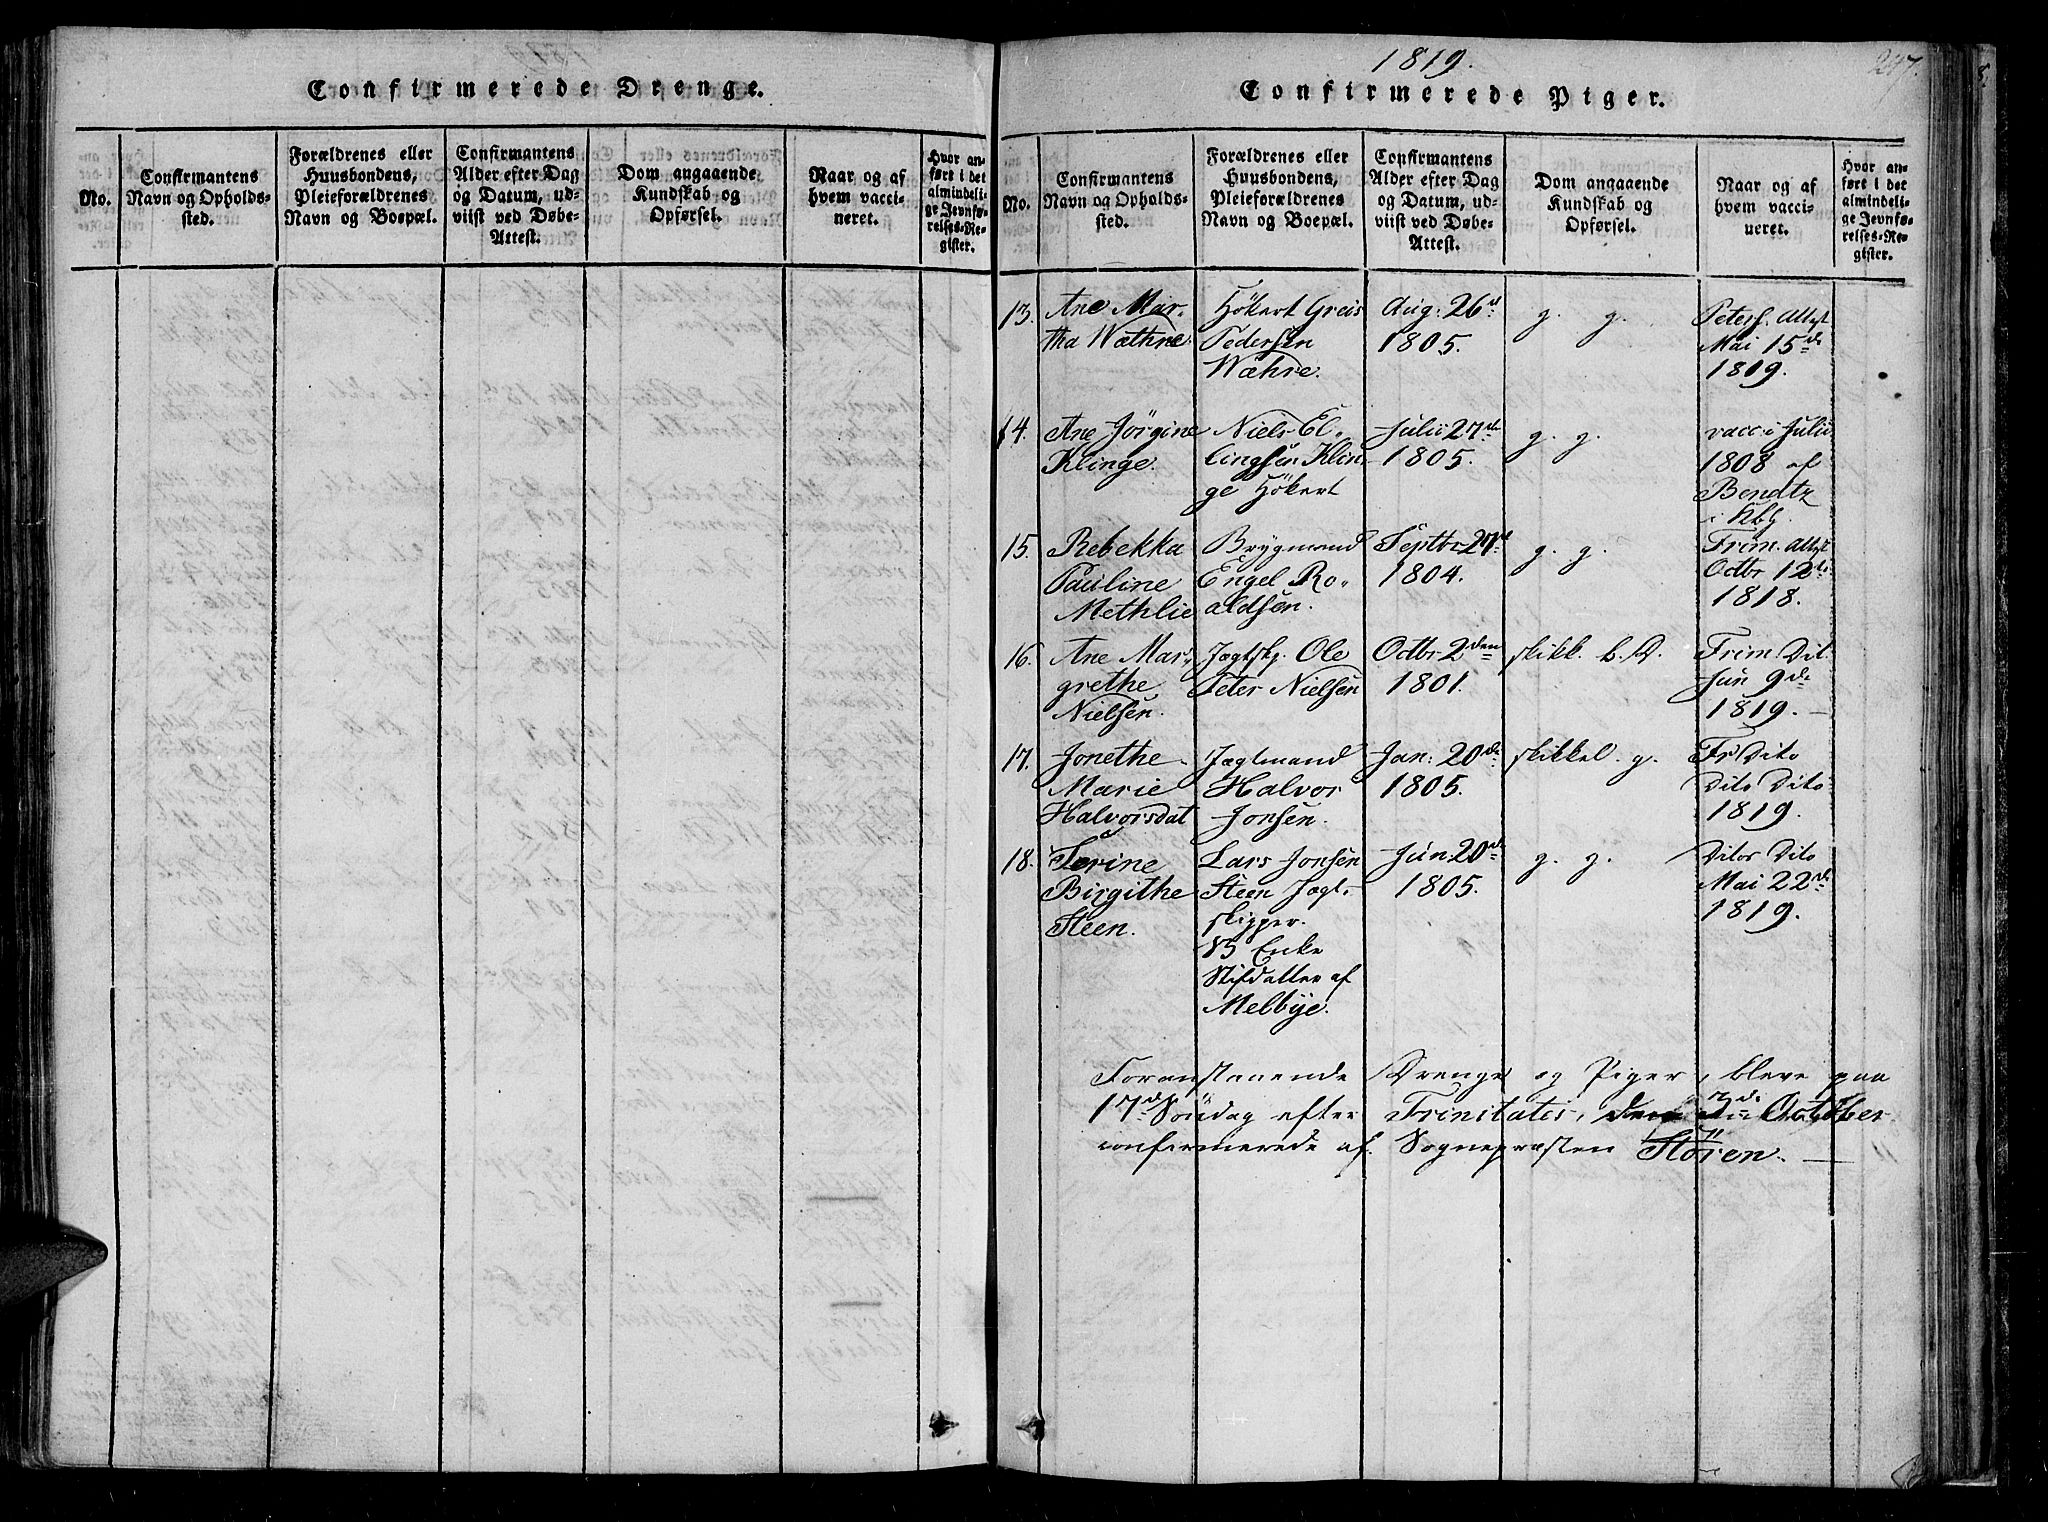 Confirmerede Drenge.
No.
Confirmantens
Navn og Opholds-
sted.
Forældrenes eller
Huusbondens,
Pleieforældrenes
Navn og Boepæl.
Confirmantens
Alder efter Dag
og Datum, ud-
viist ved Døbe-
Attest.
Dom angaaende
Kundskab og
Opførsel.
Naar og af
hvem vacci-
neret.
Hvor an-
ført i det
almindeli-
ge Jevnfø-
relses-Re-
gister.
1819.
247.
Confirmerede Piger.
No.
Confirmantens
Navn og Opholds-
sted.
Forældrenes eller
Huusbondens,
Pleieforældrenes
Navn og Boepæl.
Confirmantens
Alder efter Dag
og Datum, ud-
viist ved Døbe-
Attest.
Dom angaaende
Kundskab og
Opførsel.
Naar og af
hvem vacci-
neret.
Hvor an-
ført i det
almindeli-
ge Jevnfø-
relses-Re-
gister.
13.
Ane Mar-
tha Wæthre
Hökert Greis
Pedersen
Wæhre.
Aug: 26d
1805.
g. g.
Peters. Attest
Mai 15de
1819.
14.
Ane Jörgine
Klinge.
Niels El-
lingsen Klin-
ge Hökert
Julii 27de
1805.
g. g.
vacc. i Julii
1808 af
Bendtz
i Kbh.
15.
Rebekka
Pauline
Methlie
Brygmand
Engel Ro-
aldsen.
Septbr 27de
1804.
g. g.
Frim. Attest
Octbr 12de
1818.
16.
Ane Mar-
grethe
Nielsen.
Jægtskj. Ole
Peter Nielsen
Octbr 2den
1801.
skikk. b. D.
Frim. Dit.
Jun 9de
1819.
17.
Jonethe
Marie
Halvorsdat
Jægtmand
Halvor
Jonsen.
Jan: 20de
1805.
skikkel. g.
Fr Dito
Dito Dito
1819.
18.
Terine
Birgithe
Steen.
Lars Jonsen
Steen Jægt-
skipper.
Enke
Stifdatter af
Melbye.
Jun 20de
1805.
g. g.
Ditos Dito
Mai 22de
1819.
Foranstaaende Drenge og Piger, bleve paa
17de Söndag efter Trinitatis, den October
confirmerede af Sognepræsten Stören.